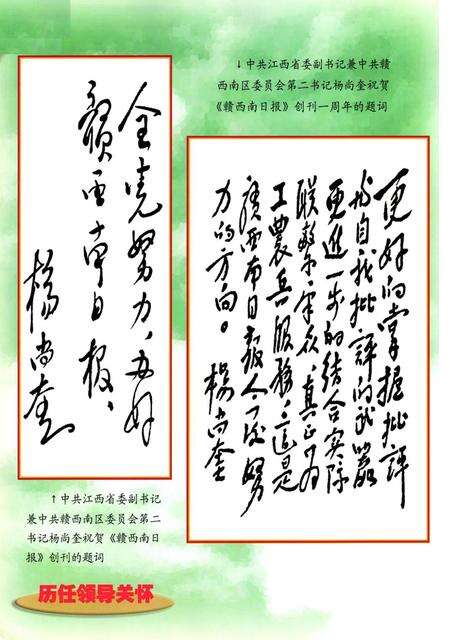 ↓中共江西省委副书记兼中共赣
西南区委员会第二书记杨尚奎祝贺
《赣西南日报》创刊一周年的题词
全党努力、办好
赣西南日报、
楊尚奎
更好的掌握批評
与自我批評的武器
更進一步的结合实际
联繫羣众，真正为
工農兵服務，這是
赣西南日報今后努
力的方向。
楊尚奎
↑中共江西省委副书记
兼中共赣西南区委员会第二
书记杨尚奎祝贺《赣西南日
报》创刊的题词
历任领导关怀